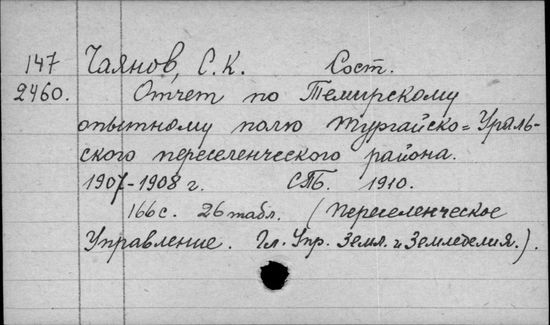 147 Чаянов, С.К. Сост.
2460. Отчет по Темирскому
опытному полю Тургайско=Ураль-
ского переселенческого района.
1907-1908 г. СПБ. 1910.
166 с. 26 табл. (Переселенческое
Управление. Гл. Упр. Земл. и Земледелия.).